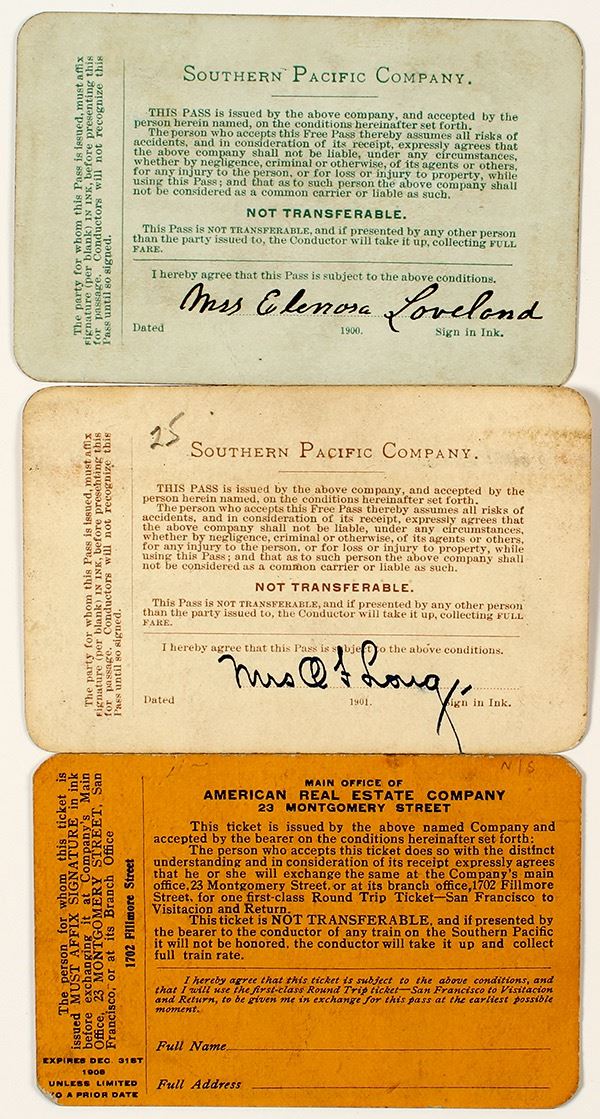 The party for whom this Pass is issued, must affix
signature (per blank) IN INK, before presenting this
for passage. Conductors will not recognize this
Pass until so signed.
SOUTHERN PACIFIC COMPANY.
THIS PASS is issued by the above company, and accepted by the
person herein named, on the conditions hereinafter set forth.
The person who accepts this Free Pass thereby assumes all risks of
accidents, and in consideration of its receipt, expressly agrees that
the above company shall not be liable, under any circumstances,
whether by negligence, criminal or otherwise, of its agents or others,
for any injury to the person, or for loss or injury to property, while
using this Pass; and that as to such person the above company shall
not be considered as a common carrier or liable as such.
NOT TRANSFERABLE.
This Pass is NOT TRANSFERABLE, and if presented by any other person
than the party issued to, the Conductor will take it up, collecting FULL
FARE.
I hereby agree that this Pass is subject to the above conditions.
Miss Elenora Loveland
Dated 1900. Sign in Ink.
The party for whom this Pass is issued, must affix
signature (per blank) IN INK, before presenting this
for passage. Conductors will not recognize this
Pass until so signed.
25
SOUTHERN PACIFIC COMPANY.
THIS PASS is issued by the above company, and accepted by the
person herein named, on the conditions hereinafter set forth.
The person who accepts this Free Pass thereby assumes all risks of
accidents, and in consideration of its receipt, expressly agrees that
the above company shall not be liable, under any circumstances,
whether by negligence, criminal or otherwise, of its agents or others,
for any injury to the person, or for loss or injury to property, while
using this Pass; and that as to such person the above company shall
not be considered as a common carrier or liable as such.
NOT TRANSFERABLE.
This Pass is NOT TRANSFERABLE, and if presented by any other person
than the party issued to, the Conductor will take it up, collecting FULL
FARE.
I hereby agree that this Pass is subject to the above conditions.
Mrs O F Long
Dated 1901. Sign in Ink.
The person for whom this ticket is
issued MUST AFFIX SIGNATURE in ink
before exchanging it at Company's Main
Office, 23 MONTGOMERY STREET, San
Francisco, or at its Branch Office
1702 Fillmore Street
EXPIRES DEC. 31ST
1908
UNLESS LIMITED
TO A PRIOR DATE
N/S
MAIN OFFICE OF
AMERICAN REAL ESTATE COMPANY
23 MONTGOMERY STREET
This ticket is issued by the above named Company and
accepted by the bearer on the conditions hereinafter set forth:
The person who accepts this ticket does so with the distinct
understanding and in consideration of its receipt expressly agrees
that he or she will exchange the same at the Company's main
office, 23 Montgomery Street, or at its branch office, 1702 Fillmore
Street, for one first-class Round Trip Ticket—San Francisco to
Visitacion and Return.
This ticket is NOT TRANSFERABLE, and if presented by
the bearer to the conductor of any train on the Southern Pacific
it will not be honored, the conductor will take it up and collect
full train rate.
I hereby agree that this ticket is subject to the above conditions, and
that I will use the first-class Round Trip ticket—San Francisco to Visitacion
and Return, to be given me in exchange for this pass at the earliest possible
moment.
Full Name
Full Address